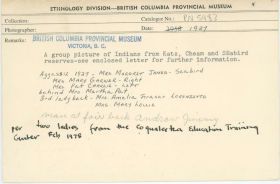 ETHNOLOGY DIVISION—BRITISH COLUMBIA PROVINCIAL MUSEUM
Collection:
Catalogue No.: PN 5983
Photographer:
Date: 1937
Remarks: BRITISH COLUMBIA PROVINCIAL MUSEUM
VICTORIA, B. C.
A group picture of Indians from Katz, Cheam and SEabird
reserves-see enclosed letter for further information.
Agassiz 1937 - Mrs Margaret James - Seabird
Mrs Mary George - Right
Mrs Pat Charlie - Left
behind Mrs Martha Pat
3rd lady back - Mrs Amelia Fraser
Mrs Mary Lewis
man at far back Andrew Jimmy
per two ladies from the Coqualeetza Education Training
Center Feb 1978